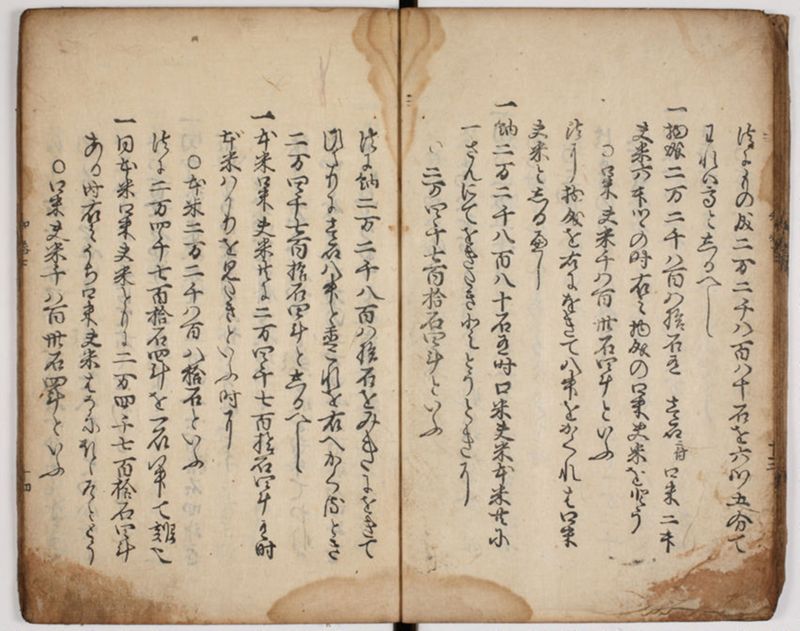 二万二千八百八十石を六ツ五分て
われハ高としるへし
一物成二万二千八百八拾石有 壱石ニ付口米二升
夫米六升つゝの時右之物成の口米夫米を
〇口米夫米千八百卅石四斗といふ
法ニ物成を右にをきて八升をかくれは口米
夫米としるへし
一納二万二千八百八十石有時口米夫米本米共に
一さんにてをきたき
〇二万四千七百拾石四斗といふ
法に納二万二千八百八拾石をみきにをきて
ひたりに壱石八升と置これを右へかくるとき
二万四千七百拾石四斗としるへし
一本米口米夫米共に二万四千七百拾石四斗有時
本米ハかりを見たきといふ時
〇本米二万二千八百八拾石といふ
法に二万四千七百拾石四斗を一石八升て割也
一同本米口米夫米ともに二万四千七百拾石四斗
ある時右之うち口米夫米はかり
〇口米夫米千八百卅石四斗といふ